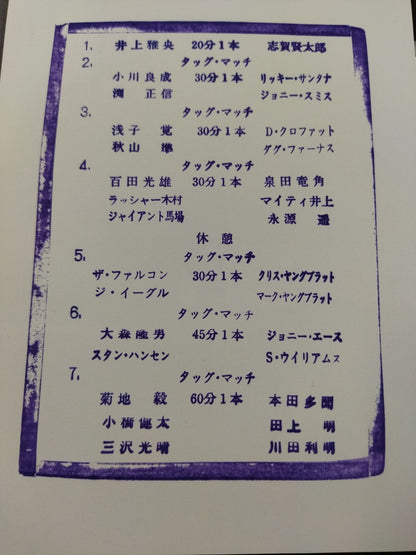 1. 井上雅央 20分1本 志賀賢太郎
2. タッグ・マッチ
小川良成 30分1本 リッキー・サンタナ
渕 正信 ジョニー・スミス
3. タッグ・マッチ
浅子 覚 30分1本 D・クロファット
秋山 準 ダグ・ファーナス
4. タッグ・マッチ
百田光雄 30分1本 泉田竜角
ラッシャー木村 マイティ井上
ジャイアント馬場 永源 遥
休憩
5. タッグ・マッチ
ザ・ファルコン 30分1本 クリス・ヤングブラット
ジ・イーグル マーク・ヤングブラット
6. タッグ・マッチ
大森隆男 45分1本 ジョニー・エース
スタン・ハンセン S・ウイリアムス
7. タッグ・マッチ
菊地 毅 60分1本 本田多聞
小橋健太 田上 明
三沢光晴 川田利明